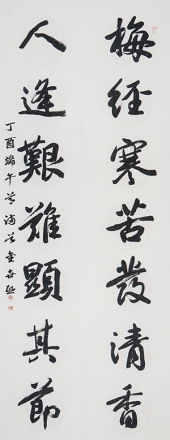 梅經寒苦發清香
人逢艱難顯其節
丁酉端午